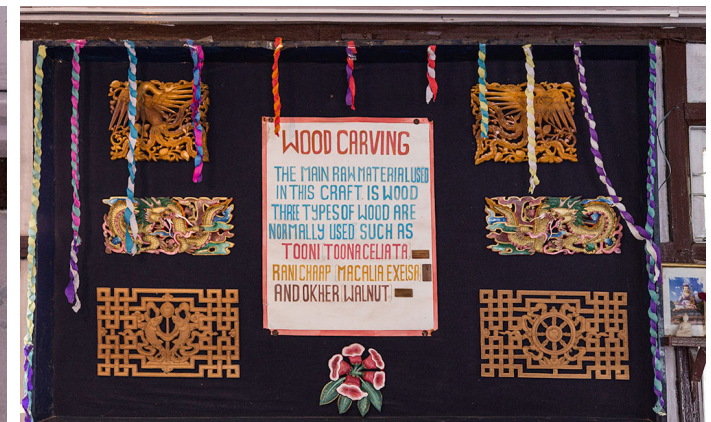 WOOD CARVING
THE MAIN RAW MATERIAL USED
IN THIS CRAFT IS WOOD
THREE TYPES OF WOOD ARE
NORMALLY USED SUCH AS
TOONI TOONA CELIATA
RANI CHAAP MACALIA EXELSA
AND OKHER WALNUT